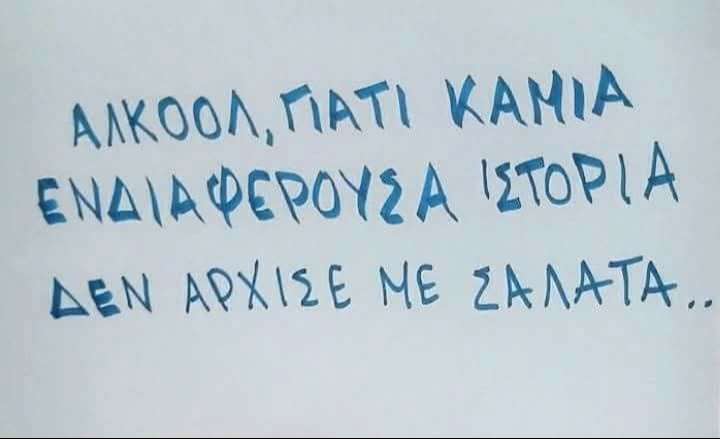 ΑΛΚΟΟΛ, ΓΙΑΤΙ ΚΑΜΙΑ
ΕΝΔΙΑΦΕΡΟΥΣΑ ΙΣΤΟΡΙΑ
ΔΕΝ ΑΡΧΙΣΕ ΜΕ ΣΑΛΑΤΑ..